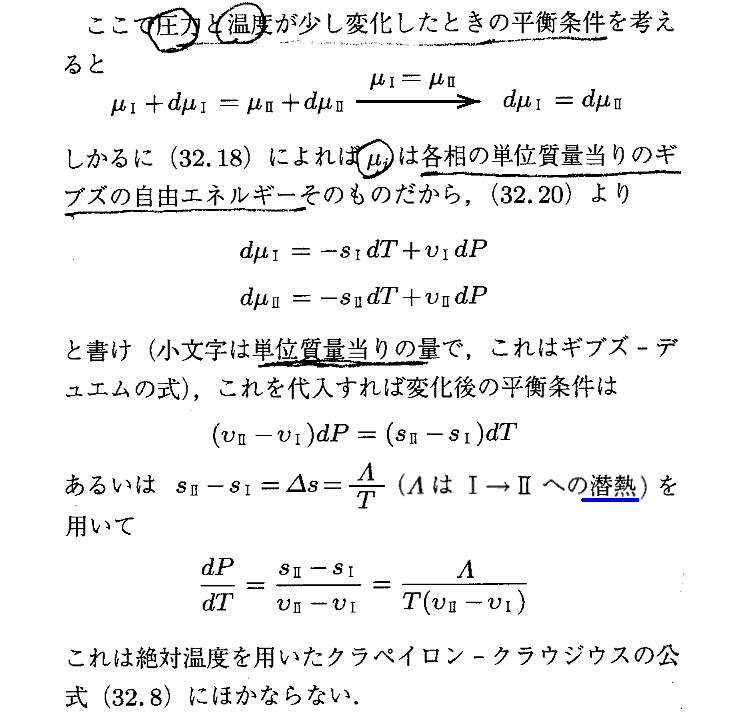 ここで圧力と温度が少し変化したときの平衡条件を考え
ると
μⅠ+dμⅠ = μⅡ+dμⅡ ―μⅠ=μⅡ→ dμⅠ = dμⅡ
しかるに (32.18) によれば μi は各相の単位質量当りのギ
ブズの自由エネルギーそのものだから, (32.20) より
dμⅠ = -sⅠdT+vⅠdP
dμⅡ = -sⅡdT+vⅡdP
と書け (小文字は単位質量当りの量で, これはギブズ-デ
ュエムの式), これを代入すれば変化後の平衡条件は
(vⅡ-vⅠ)dP = (sⅡ-sⅠ)dT
あるいは sⅡ-sⅠ = Δs = Λ/T (Λ は Ⅰ→Ⅱ への潜熱) を
用いて
dP/dT = (sⅡ-sⅠ)/(vⅡ-vⅠ) = Λ/T(vⅡ-vⅠ)
これは絶対温度を用いたクラペイロン-クラウジウスの公
式 (32.8) にほかならない.